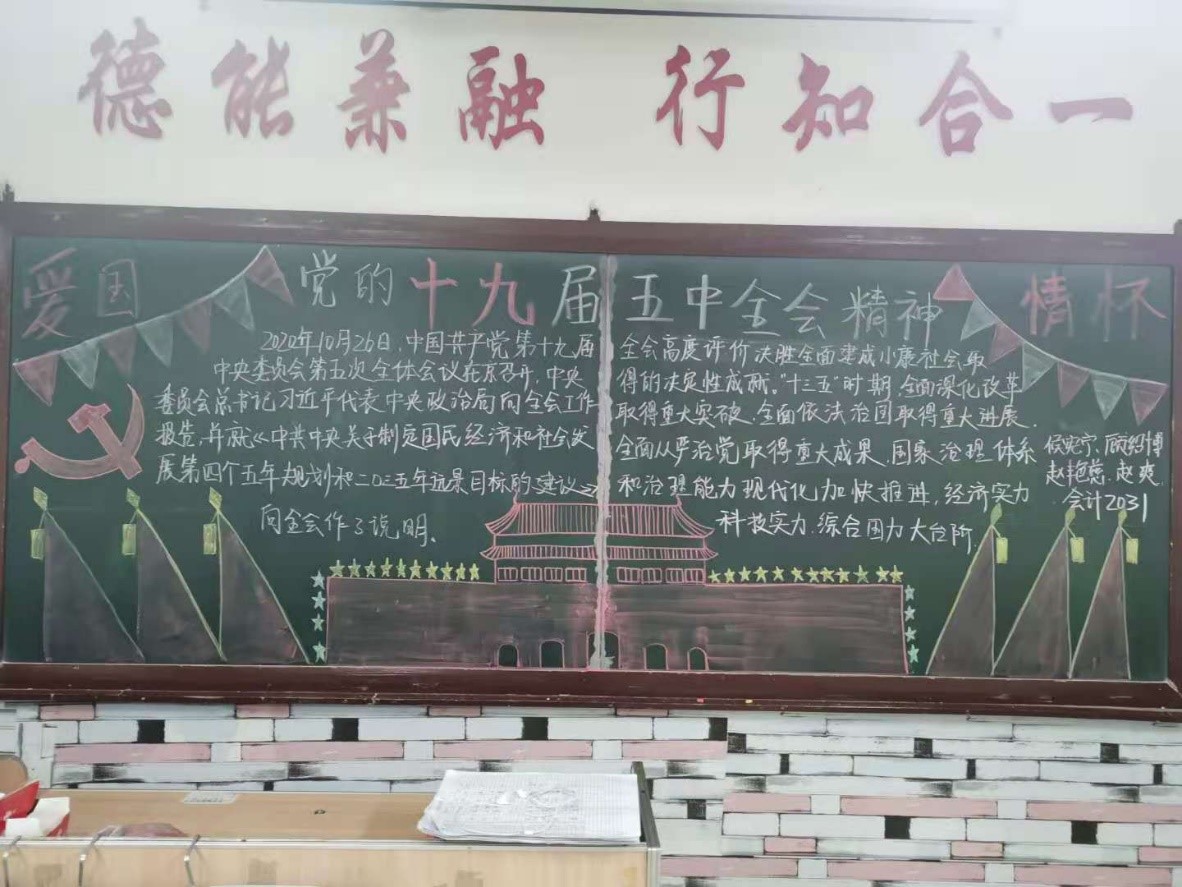 德能兼融 行知合一
爱国 党的十九届五中全会精神 情怀
2020年10月26日,中国共产党第十九届
中央委员会第五次全体会议在京召开,中央
委员会总书记习近平代表中央政治局向全会工作
报告,并就《中共中央关于制定国民经济和社会发
展第四个五年规划和二〇三五年远景目标的建议》
向全会作了说明。
全会高度评价决胜全面建成小康社会取
得的决定性成就。"十三五"时期,全面深化改革
取得重大突破,全面依法治国取得重大进展,
全面从严治党取得重大成果,国家治理体系
和治理能力现代化加快推进,经济实力
科技实力,综合国力大台阶,
赵艳慈,赵爽
会计2031